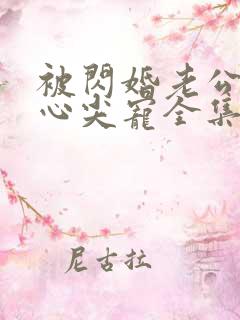 被閃婚老公
心尖寵全集
尼古拉